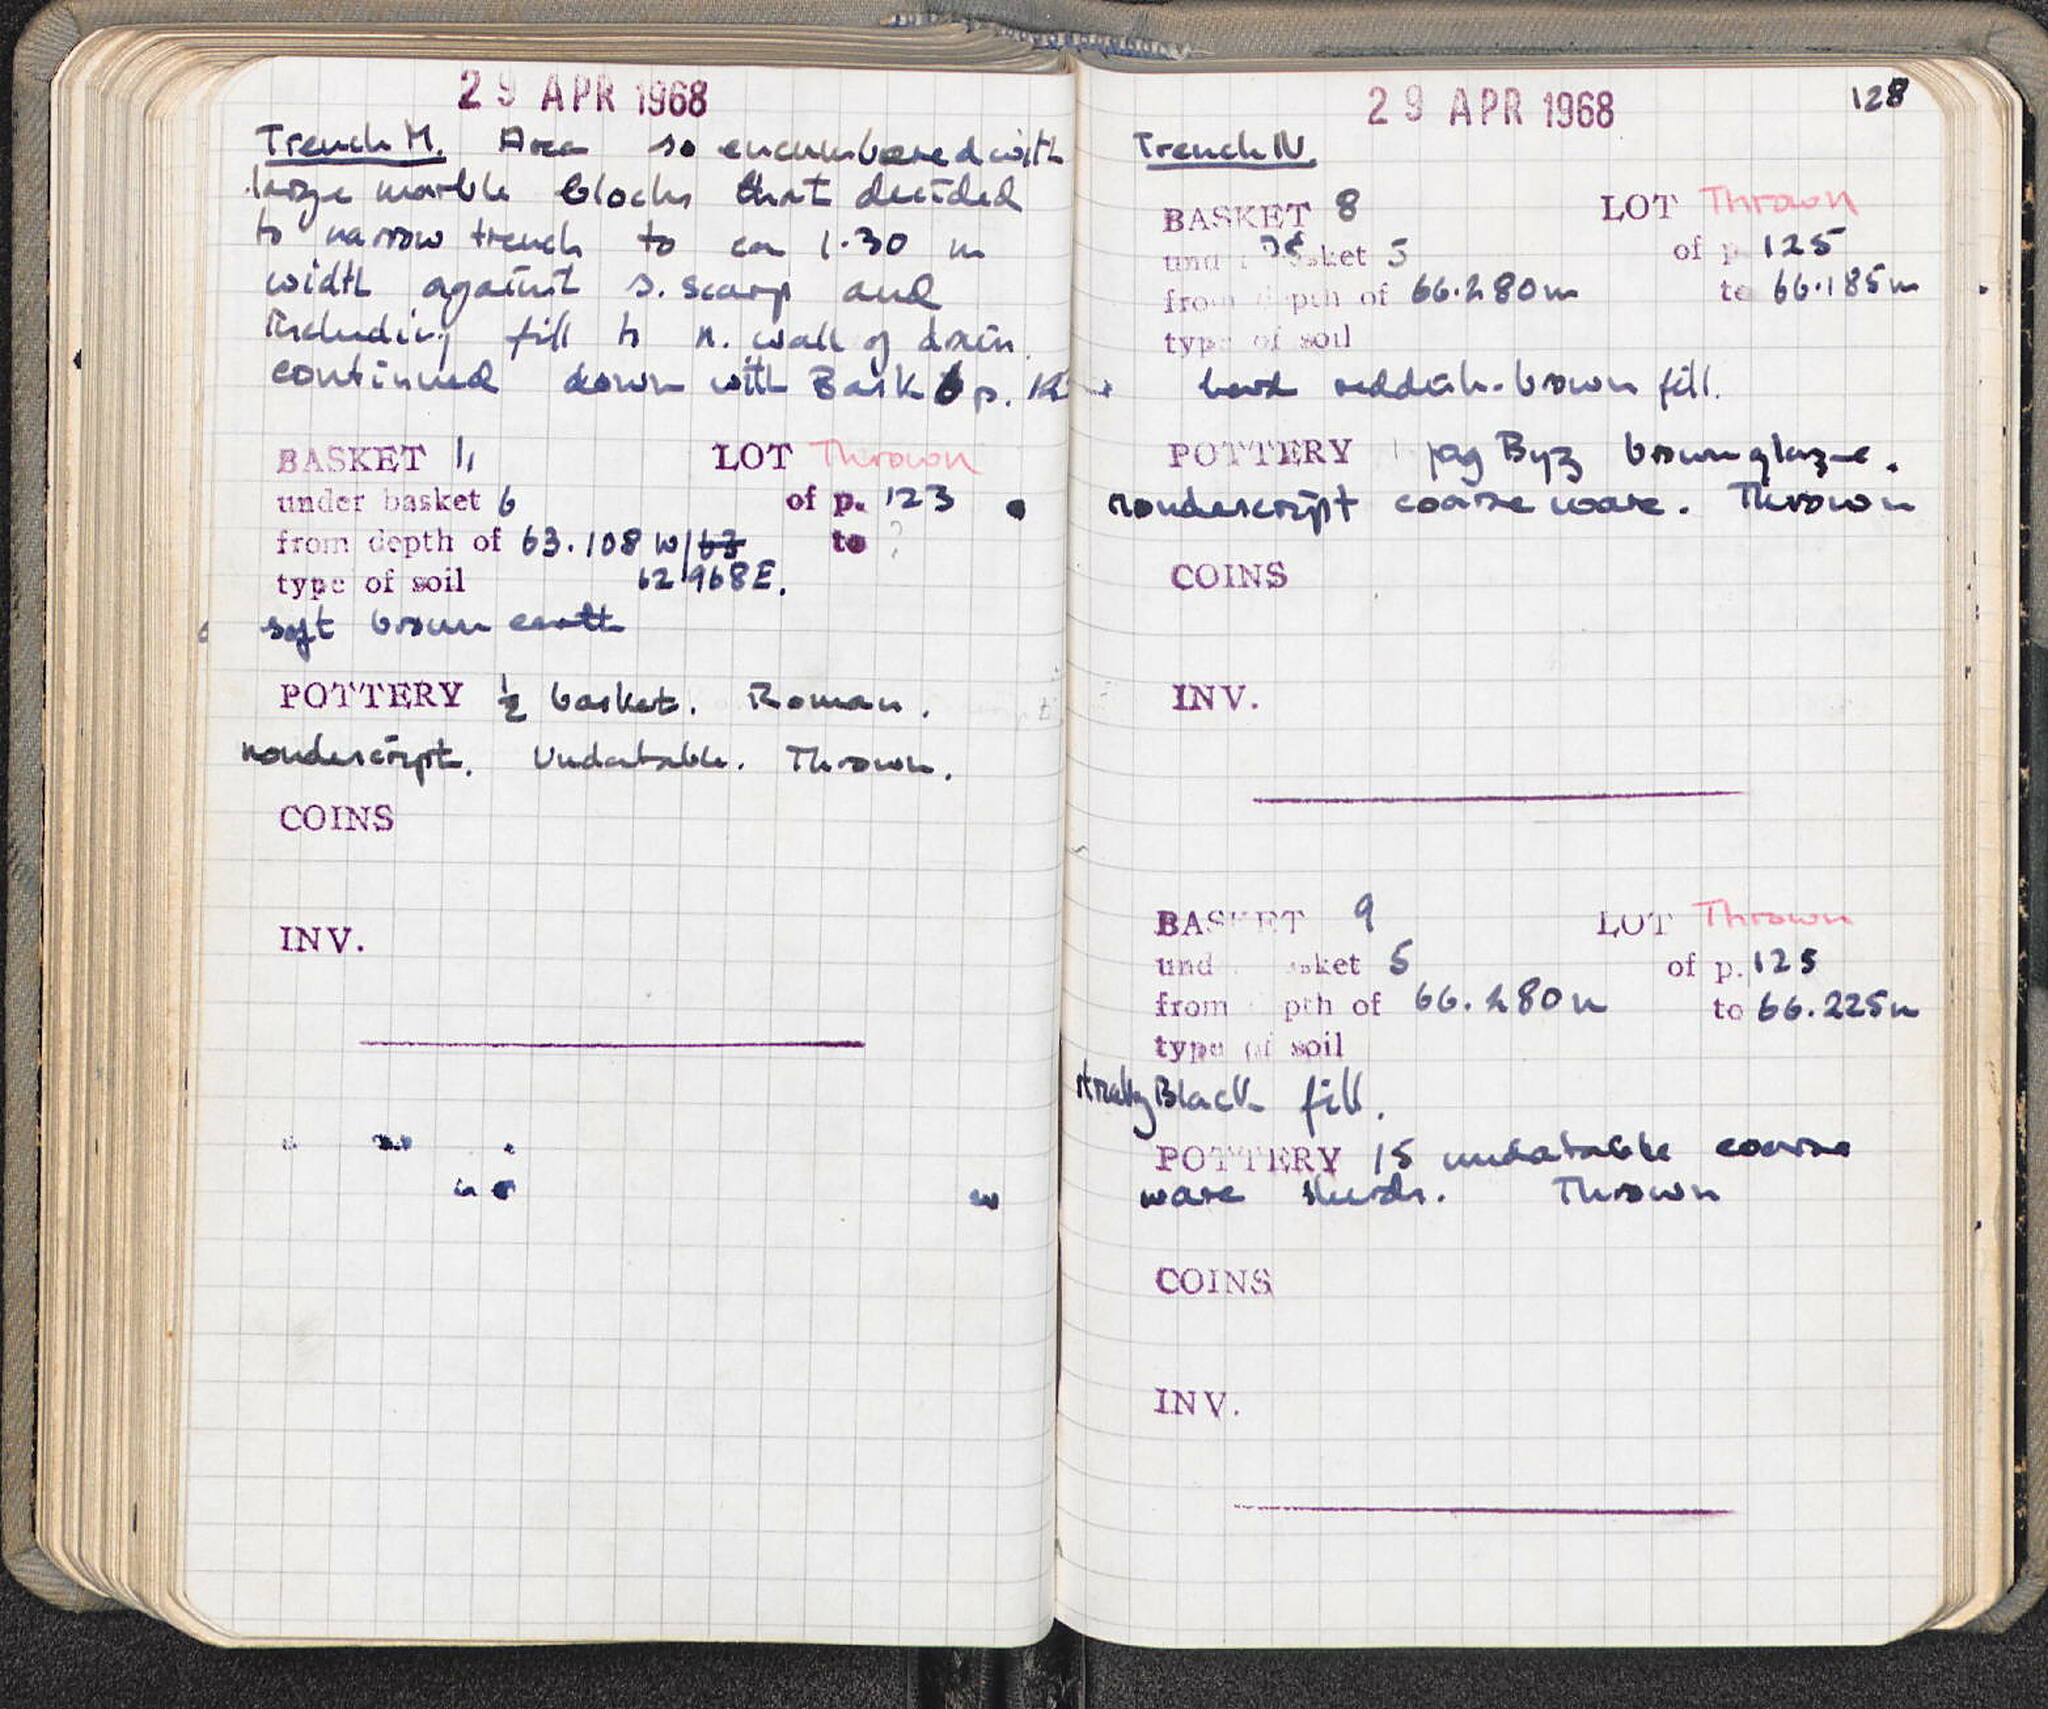 29 APR 1968
Trench M. Area so encumbered with
large marble blocks that decided
to narrow trench to ca 1.30 m
width against S. scarp and
including fill to N. wall of drain.
continued down with Bask 6 p.
BASKET 11 LOT Thrown
under basket 6 of p. 123
from depth of 63.108 W/ 63 to ?
type of soil 62.968 E.
soft brown earth
POTTERY ½ basket. Roman.
nondescript. Undatable. Thrown.
COINS
INV.
128
29 APR 1968
Trench N.
BASKET 8 LOT Thrown
under basket 5 of p. 125
from depth of 66.280m to 66.185m
type of soil
hard reddish-brown fill.
POTTERY 1 frag Byz brown glaze.
nondescript coarse ware. Thrown
COINS
INV.
BASKET 9 LOT Thrown
under basket 5 of p. 125
from depth of 66.280m to 66.225m
type of soil
Black fill.
POTTERY 15 undatable coarse
ware sherds. Thrown
COINS
INV.